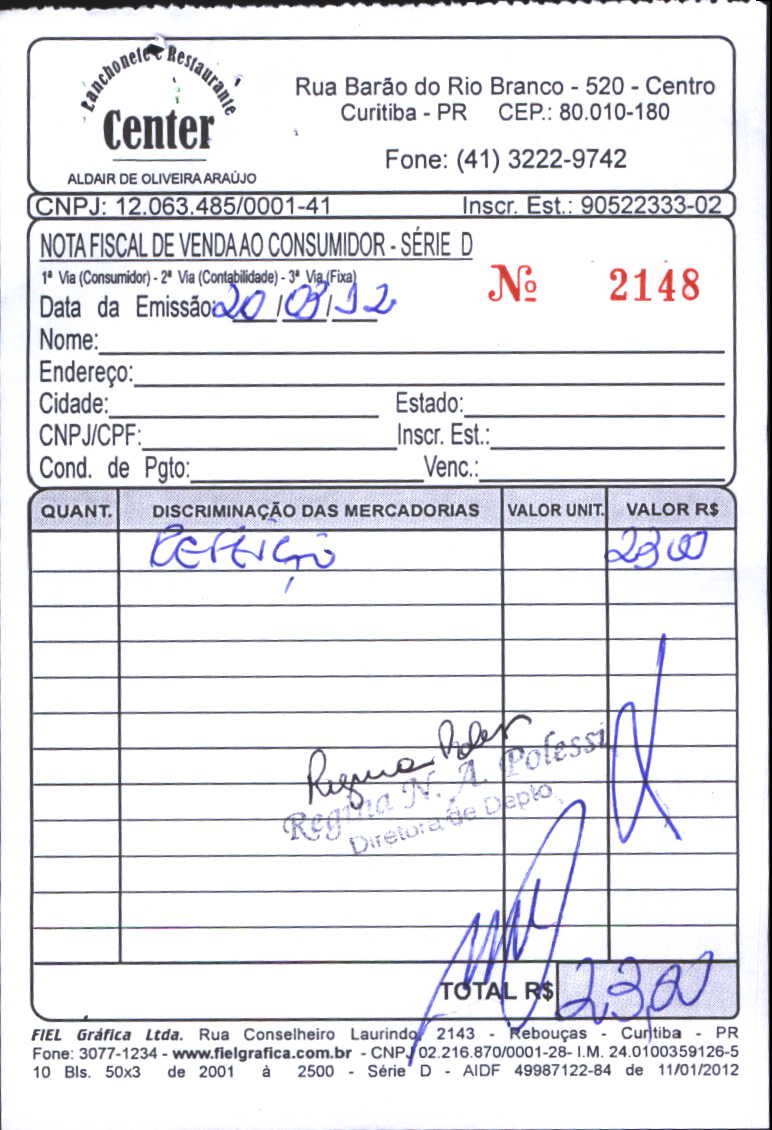 Lanchonete e Restaurante
Center
ALDAIR DE OLIVEIRA ARAÚJO
Rua Barão do Rio Branco - 520 - Centro
Curitiba - PR CEP.: 80.010-180
Fone: (41) 3222-9742
CNPJ: 12.063.485/0001-41 Inscr. Est.: 90522333-02
NOTA FISCAL DE VENDA AO CONSUMIDOR - SÉRIE D
1ª Via (Consumidor) - 2ª Via (Contabilidade) - 3ª Via (Fixa)
Nº 2148
Data da Emissão: 20/03/12
Nome:
Endereço:
Cidade: Estado:
CNPJ/CPF: Inscr. Est.:
Cond. de Pgto: Venc.:
QUANT. DISCRIMINAÇÃO DAS MERCADORIAS VALOR UNIT. VALOR R$
REFEIÇÃO 23,00
Regina Poles
Regina N. A. Polessi
Diretora de Depto
TOTAL R$ 23,00
FIEL Gráfica Ltda. Rua Conselheiro Laurindo, 2143 - Rebouças - Curitiba - PR
Fone: 3077-1234 - www.fielgrafica.com.br - CNPJ 02.216.870/0001-28- I.M. 24.0100359126-5
10 Bls. 50x3 de 2001 à 2500 - Série D - AIDF 49987122-84 de 11/01/2012